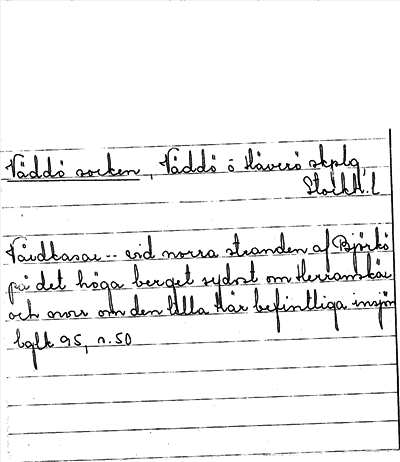 Väddö socken, Väddö o Häverö skplg
Stockh. L
Vårdkasar -- vid norra stranden af Björkö
på det höga berget sydost om Herranskär
och norr om den lilla här befintliga insjön
bglk 95, n. 50